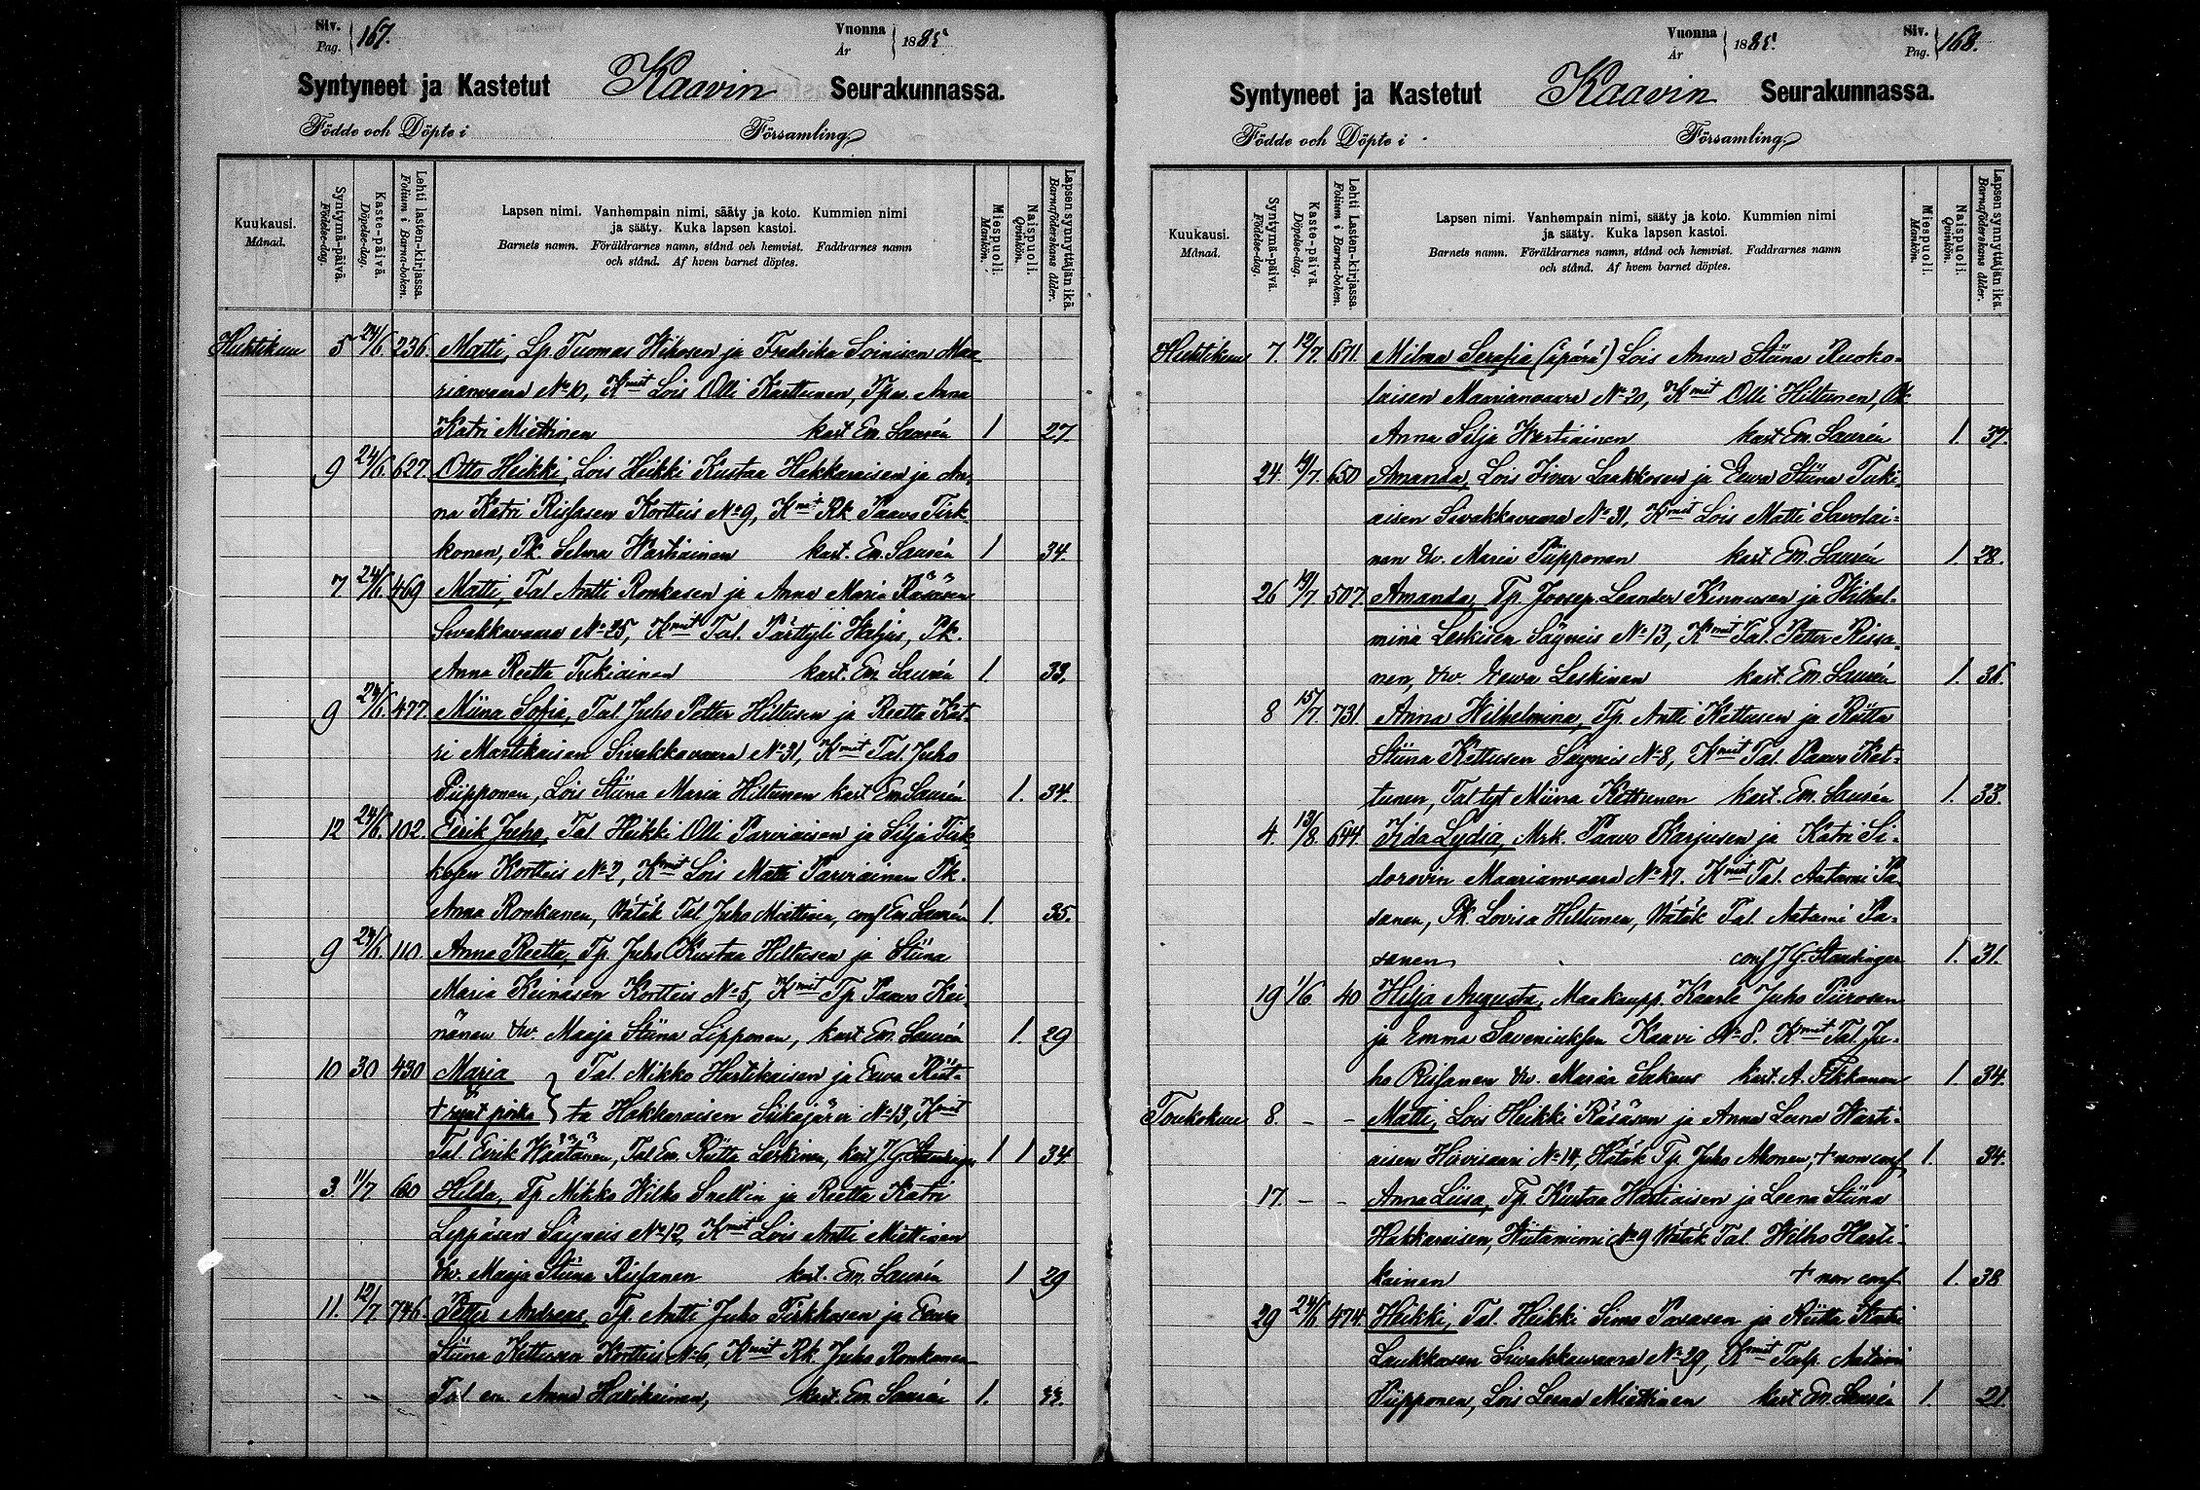 Siv. Pag. 167. Vuonna År 1885.
Syntyneet ja Kastetut Kaavin Seurakunnassa.
Födde och Döpte i Församling.
Kuukausi. Månad.
Syntymä-päivä. Födelse-dag.
Kaste-päivä. Döpelse-dag.
Lehti lasten-kirjassa. Folium i Barna-boken.
Lapsen nimi. Vanhempain nimi, sääty ja koto. Kummien nimi
ja sääty. Kuka lapsen kastoi.
Barnets namn. Föräldrarnes namn, stånd och hemvist. Faddrarnes namn
och stånd. Af hvem barnet döptes.
Miespuoli. Mankön.
Naispuoli. Qvinkön.
Lapsen synnyttäjän ikä. Barnaföderskans ålder.
Huhtikuu 5 24/6 236 Matti, Lp. Tuomas Wikosen ja Fredrika Soinisen Maa-
rianvaara No 10, Kmit Lois Olli Karttunen, Tpm. Anna
Katri Miettinen kast. Em. Saurén 1 27
9 24/6 627 Otto Heikki, Lois Heikki Kustaa Hakkaraisen ja An-
na Katri Rissasen Kortteis No 9, Kmit Rk. Paavo Tirk-
konen, Pk. Selma Wartiainen kast. Em. Saurén 1 34.
7 24/6 469 Matti, Tal. Antti Ronkasen ja Anna Maria Räsäsen
Sivakkavaara No 25, Kmit Tal. Pärttyli Haljus, Pk.
Anna Reetta Tukiainen kast. Em. Saurén 1. 33.
9 24/6 477 Miina Sofia, Tal. Juho Petter Hiltusen ja Reetta Kat-
ri Martikaisen Sivakkavaara No 31, Kmit Tal. Juho
Piipponen, Lois Stiina Maria Hiltunen kast Em. Saurén 1. 34.
12 24/6. 102. Eerik Juho, Tal. Heikki Olli Parviaisen ja Silja Tirk-
kosen Kortteis No 2, Kmit Lois Matti Parviainen Pk.
Anna Ronkanen, Hätäk Tal. Juho Miettinen, conf Em Saurén 1. 35.
9 24/6. 110 Anna Reetta, Tp. Juho Kustaa Hiltusen ja Stiina
Maria Keinäsen Kortteis No 5, Kmit Tp. Paavo Kei-
nänen Vv. Maaja Stiina Lipponen, kast Em. Saurén 1. 29
10 30 430 Maria Tal. Mikko Hartikaisen ja Eeva Riit-
+ synt poika ta Hakkaraisen Siikajärvi No 13, Kmit
Tal. Eerik Väätänen, Tal. Em. Riitta Leskinen, kast J. G. Standinger 1 1 34.
3. 11/7 660 Hilda, Tp. Mikko Wilho Snellin ja Reetta Katri
Leppäsen Säyneis No 12, Kmit Lois Antti Miettinen
Vv. Maaja Stiina Rissanen kast. Em. Saurén 1 29
11. 12/7 746. Petter Andreas, Tp. Antti Juho Tirkkosen ja Eeva
Stiina Kettusen Kortteis No 6, Kmit Rk. Juho Ronkanen
Tal. em. Anna Hartikainen, kast. Em. Saurén 1. 33.
Vuonna År 1885. Siv. Pag. 168.
Syntyneet ja Kastetut Kaavin Seurakunnassa.
Födde och Döpte i Församling.
Kuukausi. Månad.
Syntymä-päivä. Födelse-dag.
Kaste-päivä. Döpelse-dag.
Lehti Lasten-kirjassa. Folium i Barna-boken.
Lapsen nimi. Vanhempain nimi, sääty ja koto. Kummien nimi
ja sääty. Kuka lapsen kastoi.
Barnets namn. Föräldrarnes namn, stånd och hemvist. Faddrarnes namn
och stånd. Af hvem barnet döptes.
Miespuoli. Mankön.
Naispuoli. Qvinkön.
Lapsen synnyttäjän ikä. Barnaföderskans ålder.
Huhtikuu 7. 12/7. 671. Milma Serafia (äpärä) Lois Anna Stiina Ruoko-
laisen Maarianvaara No 20, Kmit Olli Hiltunen, Pk
Anna Silja Wartiainen kast Em. Saurén 1. 37.
24. 19/7 650 Amanda, Lois Iivar Laukkosen ja Eeva Stiina Tuki-
aisen Sivakkavaara No 31, Kmit Lois Matti Savolai-
nen Vv. Maria Piipponen kast Em. Saurén 1. 28.
26 19/7 507 Amanda, Tp. Joosep Leander Kinnusen ja Wilhel-
mina Leskisen Säyneis No 13, Kmit Tal. Petter Rissa-
nen, Vv. Eewa Leskinen kast. Em. Saurén 1. 36.
8 15/7. 731 Anna Wilhelmina, Tp. Antti Kettusen ja Riitta
Stiina Kettusen Säyneis No 8, Kmit Tal. Paavo Ket-
tunen, Tal. tyt Miina Kettunen kast. Em. Saurén 1. 33.
4. 13/8. 644. Iida Lydia, Mrk. Paavo Karjusen ja Katri Si-
dorovin Maarianvaara No 47. Kmit Tal. Aatami Pa-
sanen, Pk. Lovisa Hiltunen, Hätäk Tal. Aatami Pa-
sanen conf J. G. Standinger 1. 31.
19 1/6 40 Hilja Augusta, Maakaupp. Kaarle Juho Piirosen
ja Emma Saveniuksen Kaavi No 8. Kmit Tal. Ju-
ho Rissanen Vv. Maria kast. A. Pikkanen 1 34.
Toukokuu 8. - - Matti, Lois Heikki Räsäsen ja Anna Leena Warti-
aisen No 14, Hätäk Tp. Juho Ahonen, + non conf 1. 34.
17. - - Anna Liisa, Tp. Kustaa Hartiaisen ja Leena Stiina
Hakkaraisen, Wiitaniemi No 9 Hätäk Tal. Wilho Harti-
kainen + non conf. 1. 38
29 24/6 474. Heikki, Tal. Heikki Simo Pasasen ja Riitta Katri
Laukkasen Sivakkavaara No 29, Kmit Talp. Aatami
Piipponen, Lois Leena Miettinen kast Em. Saurén 1. 21.